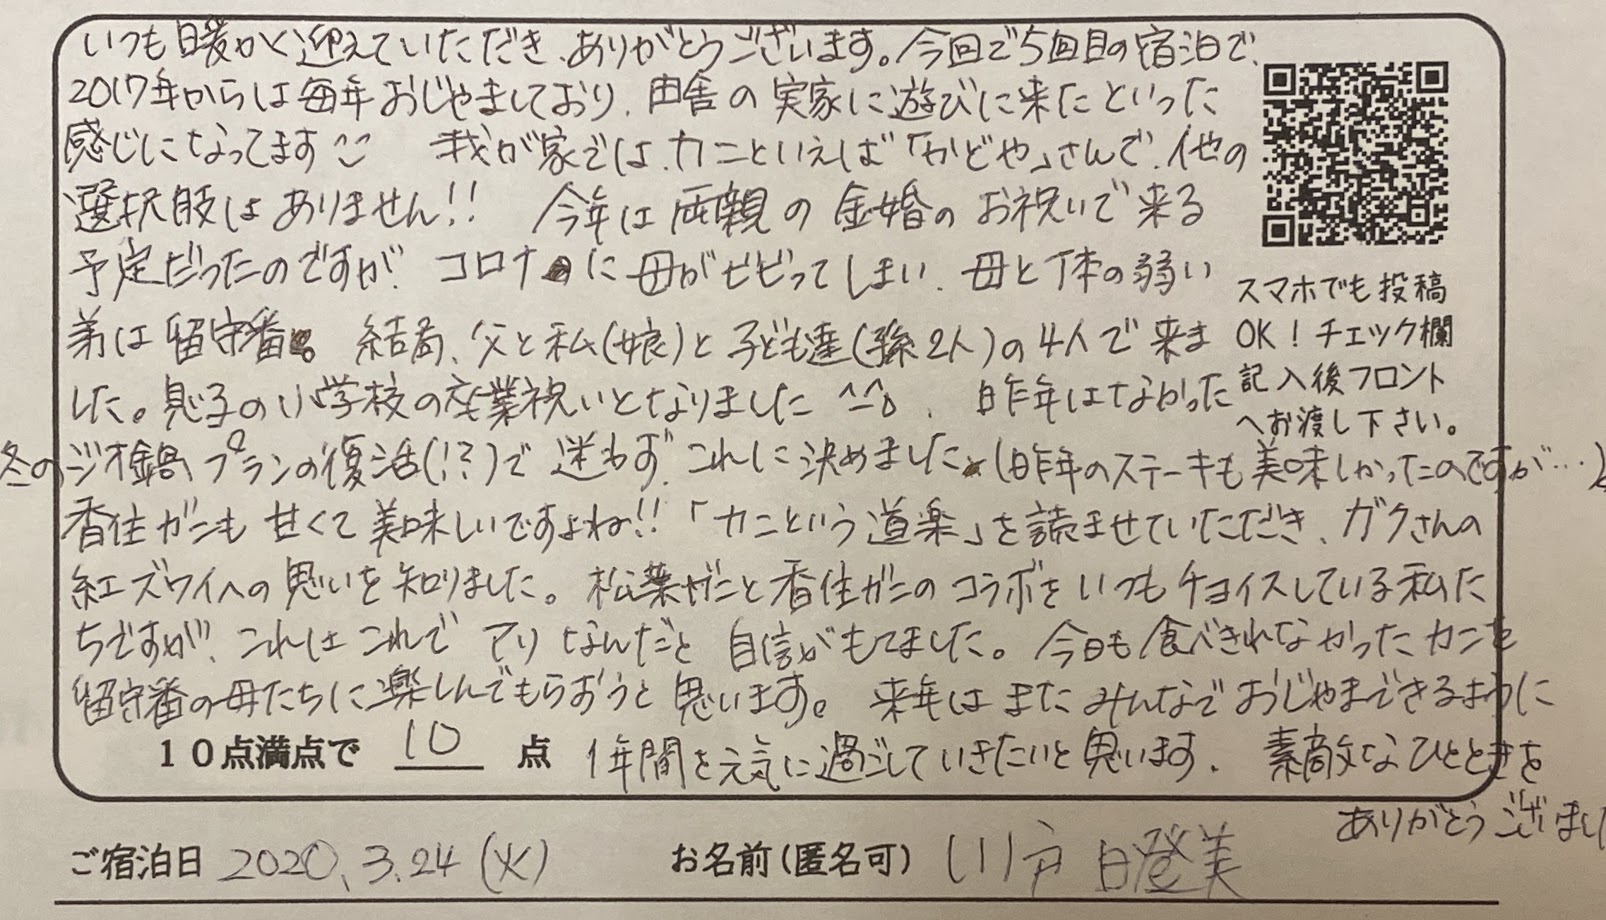 いつも暖かく迎えていただき、ありがとうございます。今回で5回目の宿泊で、
2017年からは毎年おじゃましており、田舎の実家に遊びに来たといった
感じになってます 我が家では、カニといえば「かどや」さんで、他の
選択肢はありません!! 今年は両親の金婚のお祝いで来る
予定だったのですが、コロナに母がビビってしまい、母と体の弱い
弟は留守番。結局、父と私(娘)と子ども達(孫2人)の4人で来ま
した。息子の小学校の卒業祝いとなりました ^-^。昨年はなかった
冬のジオ鍋プランの復活(!?)で迷わずこれに決めました(昨年のステーキも美味しかったのですが…)。
香住ガニも甘くて美味しいですよね!!「カニという道楽」を読ませていただき、ガクさんの
紅ズワイへの思いを知りました。松葉ガニと香住ガニのコラボをいつもチョイスしている私た
ちですが、これはこれでアリなんだと自信がもてました。今日も食べきれなかったカニを
留守番の母たちに楽しんでもらおうと思います。来年はまたみんなでおじゃまできるように
1年間を元気に過ごしていきたいと思います。素敵なひとときを
ありがとうございまし
スマホでも投稿
OK!チェック欄
記入後フロント
へお渡し下さい。
10点満点で 10 点
ご宿泊日 2020.3.24(火) お名前(匿名可) 川戸 日登美